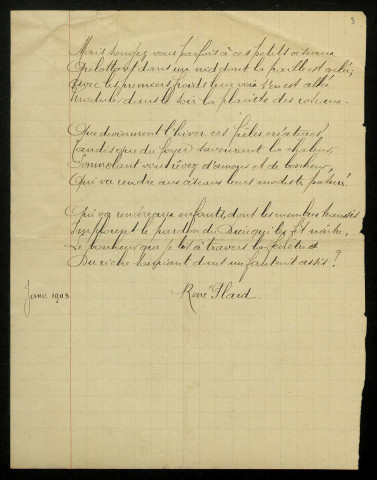 3
Mais songez vous parfois à ces petits oiseaux
Grelottant dans un nid dont la paille est gelée,
Avec les premiers froids leur voix s'en est allée
Moduler dans le soir la plainte des roseaux.
Que deviennent l'hiver ces frêles créatures,
Tandis que du foyer savourant la chaleur,
Somnolant vous rêvez d'amour et de bonheur,
Qui va rendre aux oiseaux leurs modestes pâtures?
Qui va rendre aux enfants, dont les membres transis
Implorent le pardon du Dieu qui les fit naître,
Le bonheur que jeta à travers la fenêtre
Du riche souriant dans un fauteuil assis?
Janv. 1903
René Flard.